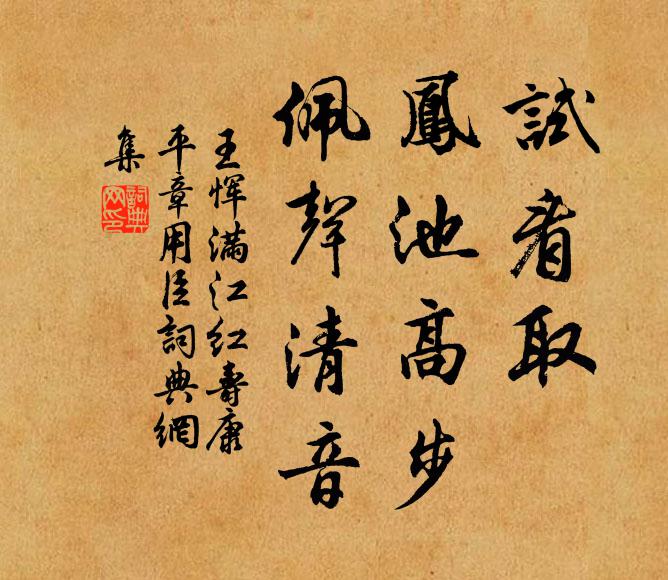 試看取
鳳池高步
佩聲清音
王惲滿江紅壽康
平章用臣詞典網
集
詞典網印